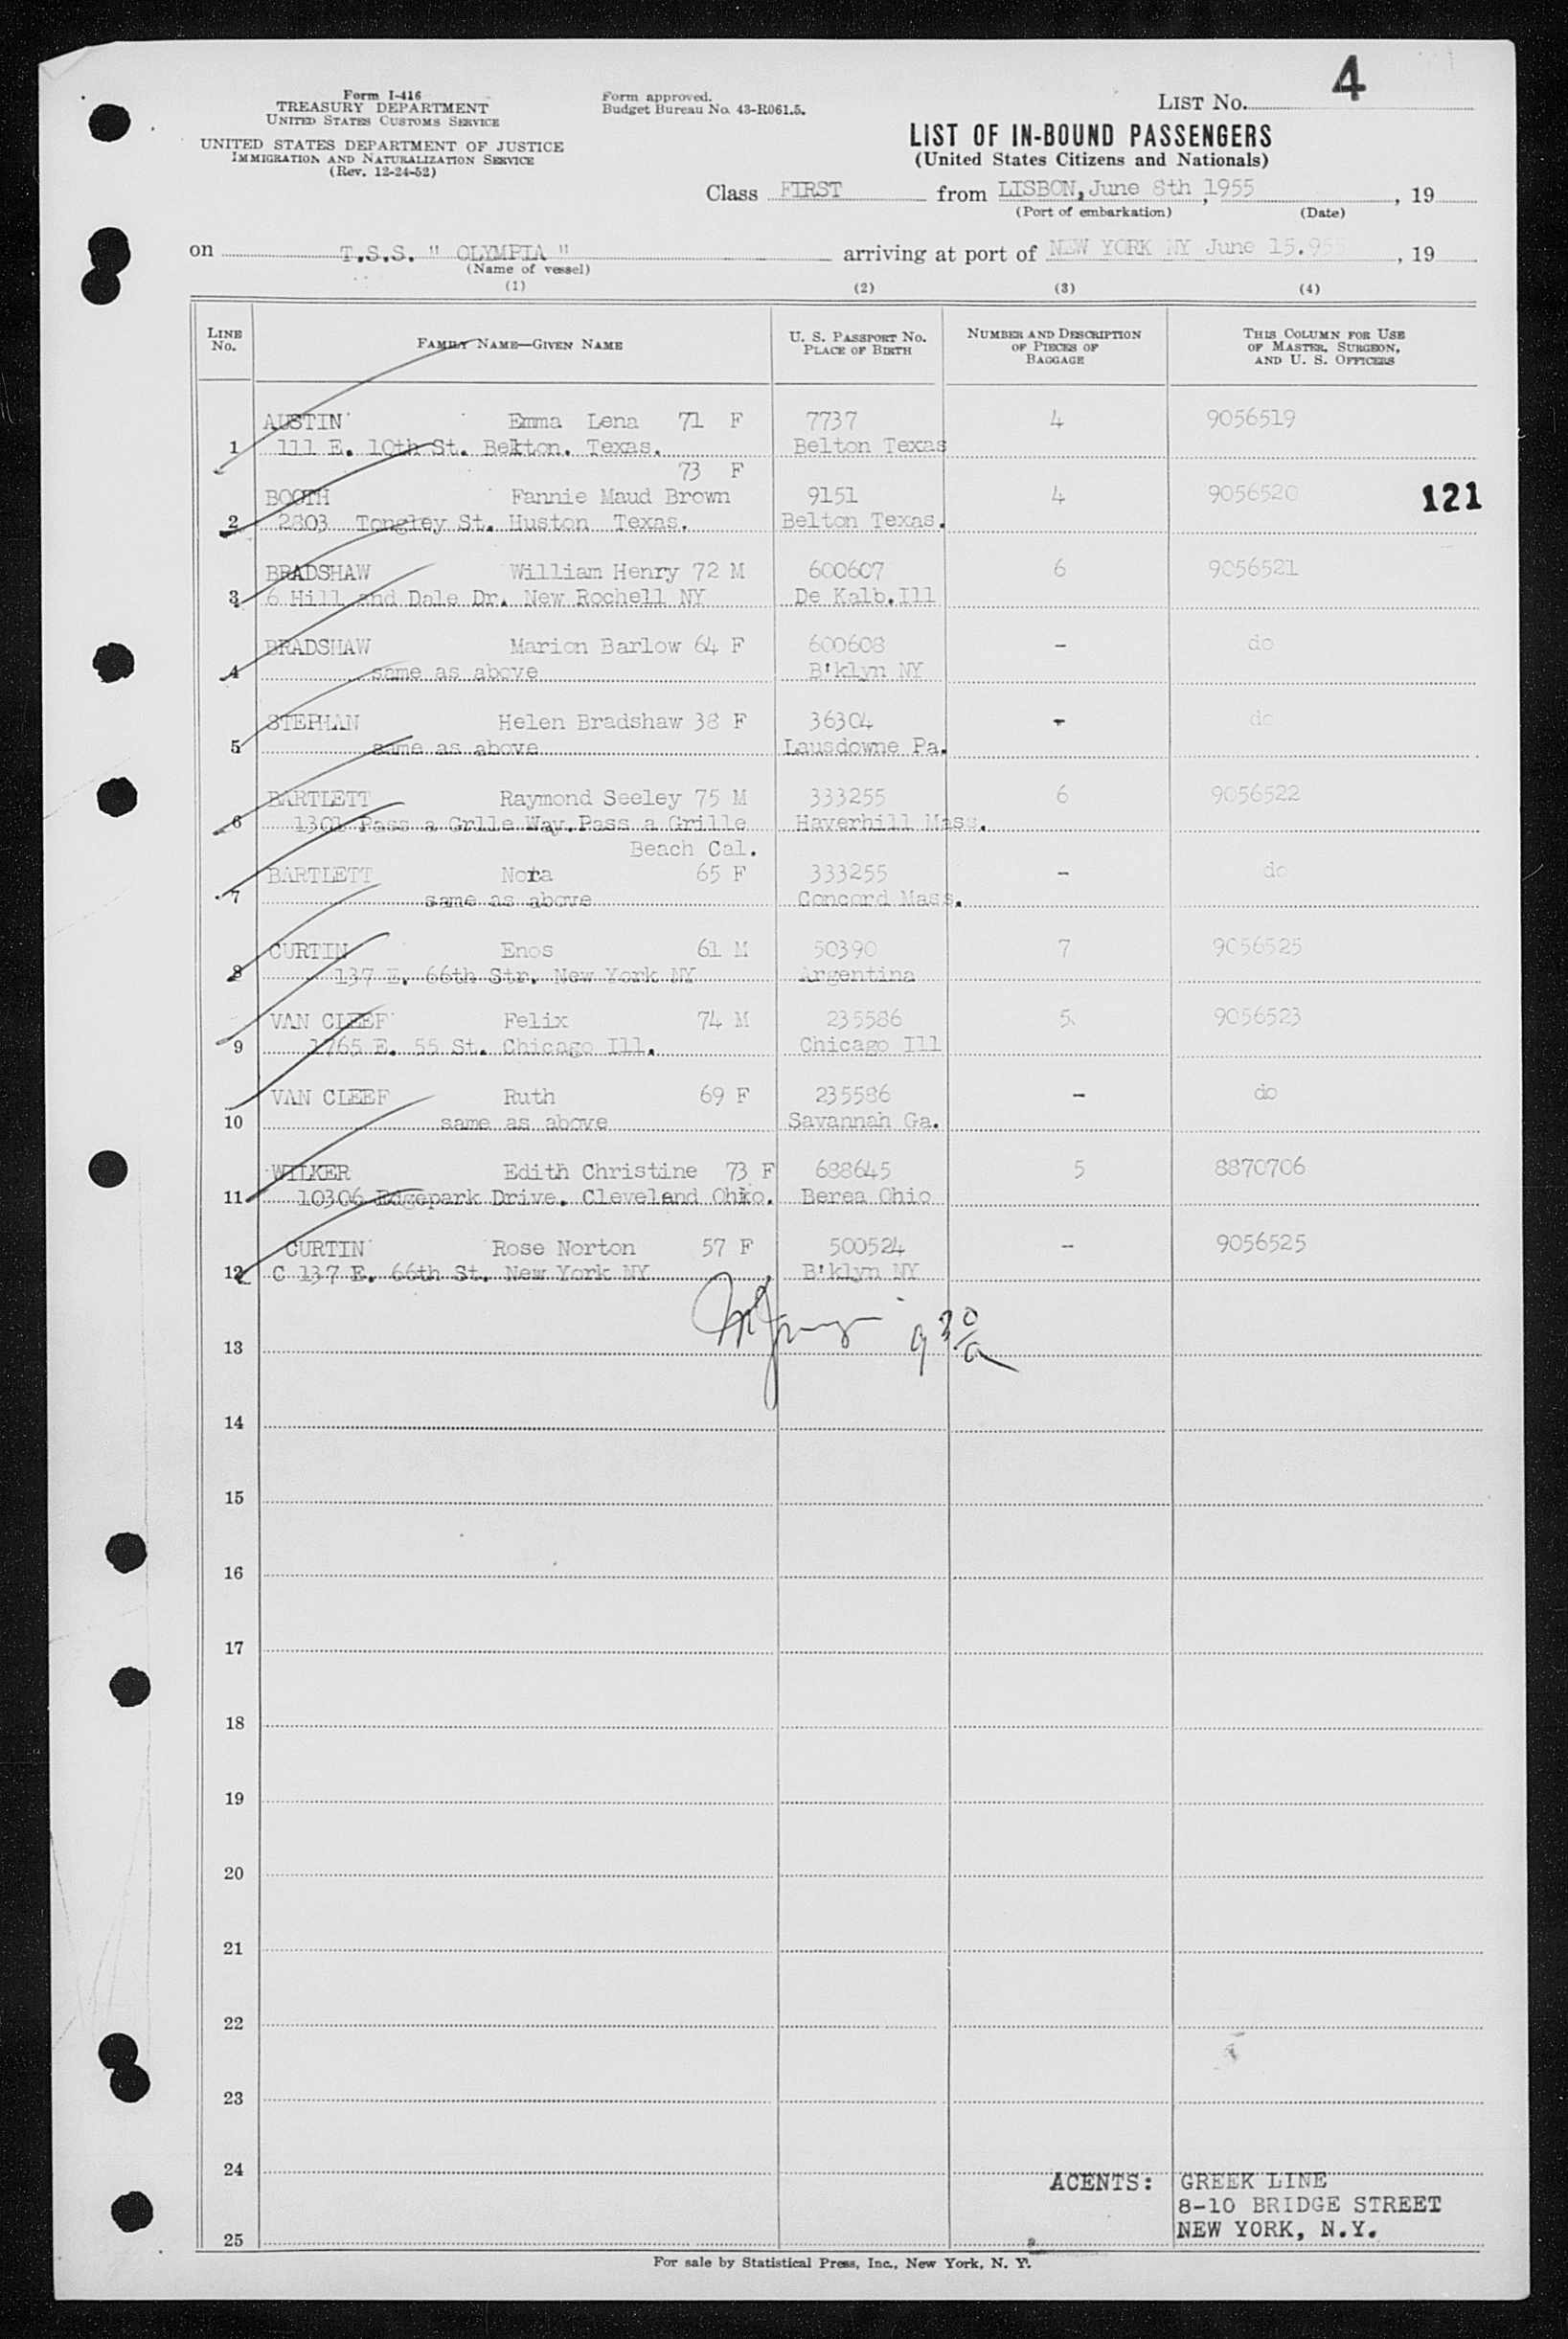 4
Form I-416
TREASURY DEPARTMENT
UNITED STATES CUSTOMS SERVICE
UNITED STATES DEPARTMENT OF JUSTICE
IMMIGRATION AND NATURALIZATION SERVICE
(Rev. 12-24-52)
Form approved.
Budget Bureau No. 43-R061.5.
LIST No.
LIST OF IN-BOUND PASSENGERS
(United States Citizens and Nationals)
Class FIRST from LISBON, June 8th, 1955, 19
(Port of embarkation) (Date)
on T.S.S. " OLYMPIA " arriving at port of NEW YORK NY June 15.955, 19
(Name of vessel)
(1) (2) (3) (4)
LINE No. FAMILY NAME—GIVEN NAME U. S. PASSPORT No. PLACE OF BIRTH NUMBER AND DESCRIPTION OF PIECES OF BAGGAGE THIS COLUMN FOR USE OF MASTER, SURGEON, AND U. S. OFFICERS
AUSTIN Emma Lena 71 F 7737 4 9056519
1 111 E. 10th St. Belton. Texas. Belton Texas
73 F
BOOTH Fannie Maud Brown 9151 4 9056520 121
2 2803 Tongley St. Huston Texas. Belton Texas.
BRADSHAW William Henry 72 M 600607 6 9056521
3 6 Hill and Dale Dr. New Rochell NY De Kalb.Ill
BRADSHAW Marion Barlow 64 F 600608 - do
4 same as above B'klyn NY
STEPHAN Helen Bradshaw 38 F 36304 - do
5 same as above Lausdowne Pa.
BARTLETT Raymond Seeley 75 M 333255 6 9056522
6 1301 Pass a Grlle Way.Pass a Grille Haverhill Mass.
Beach Cal.
BARTLETT Nora 65 F 333255 - do
7 same as above Concord Mass.
CURTIN Enos 61 M 50390 7 9056525
8 137 E. 66th Str. New York NY Argentina
VAN CLEEF Felix 74 M 235586 5 9056523
9 1765 E. 55 St. Chicago Ill. Chicago Ill
VAN CLEEF Ruth 69 F 235586 - do
10 same as above Savannah Ga.
WILKER Edith Christine 73 F 688645 5 8870706
11 10306 Edgepark Drive. Cleveland Ohio. Berea Ohio
CURTIN Rose Norton 57 F 500524 - 9056525
12 C 137 E. 66th St. New York NY B'klyn NY
9 30/a
13
14
15
16
17
18
19
20
21
22
23
24
AGENTS: GREEK LINE
8-10 BRIDGE STREET
NEW YORK, N.Y.
25
For sale by Statistical Press, Inc., New York, N. Y.